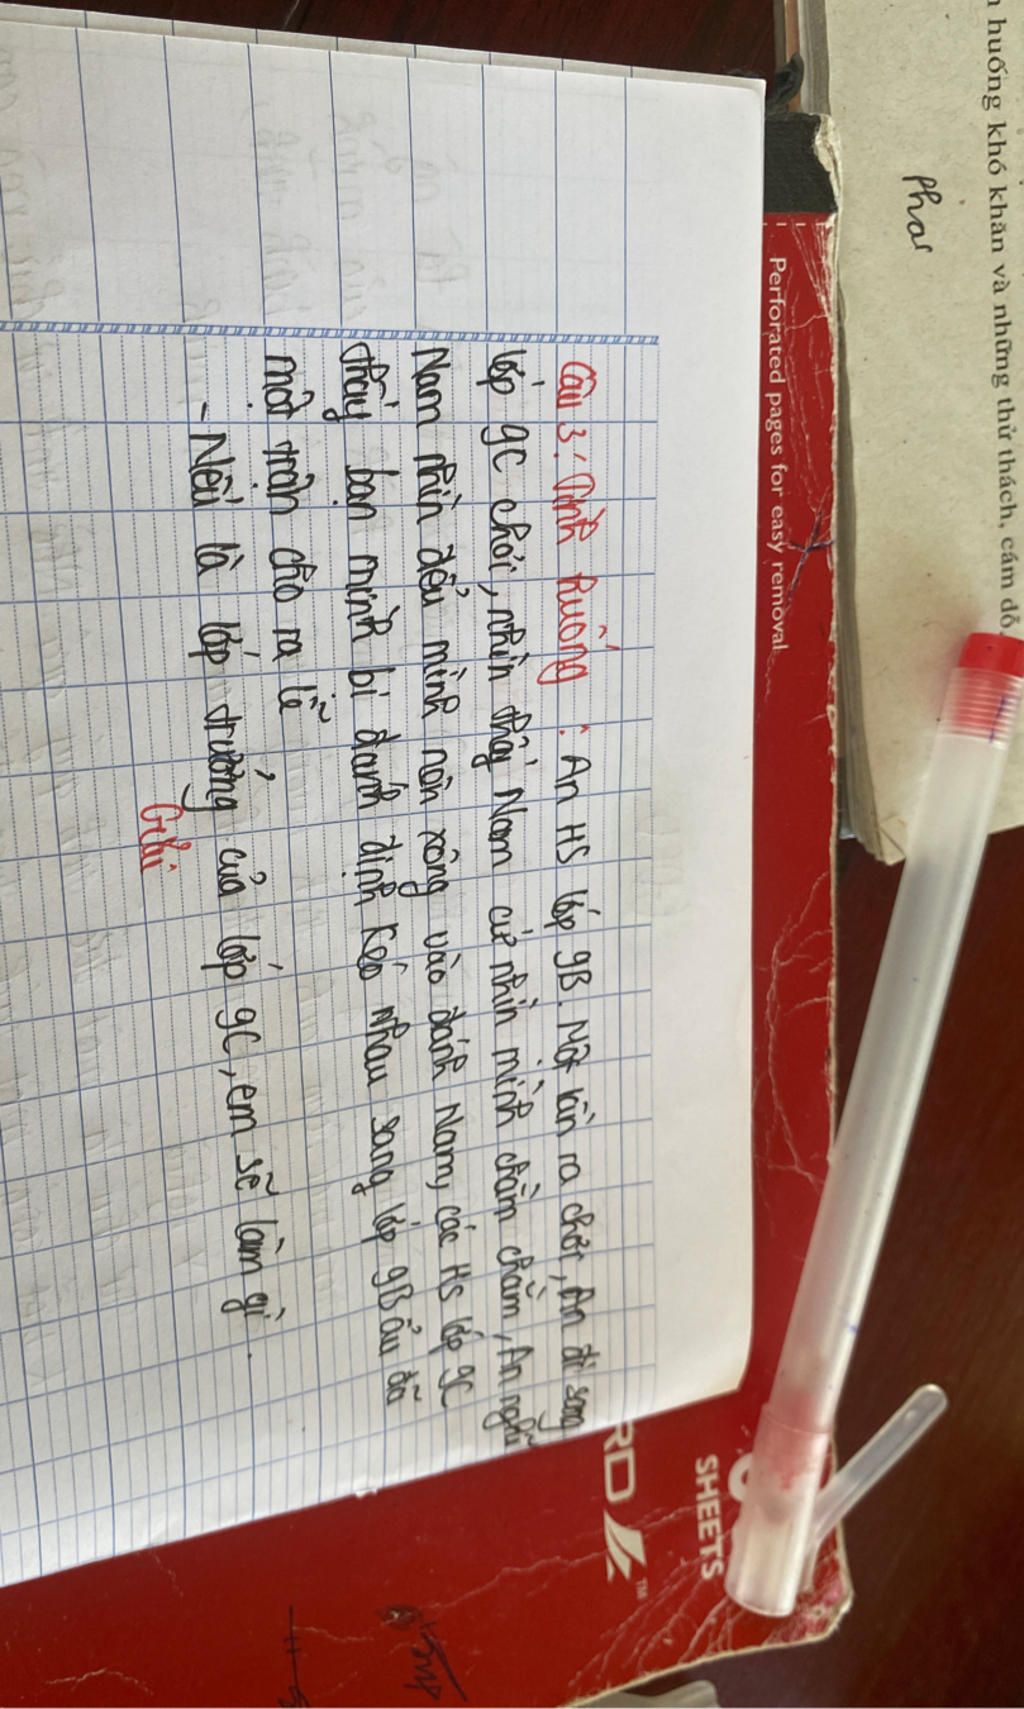 huống khó khăn và những thử thách, cám dỗ
phar
Perforated pages for easy removal
Câu 3: Tình huống : An HS lớp 9B. Một lần ra chơi, An đi sang
lớp 9C chơi, nhìn thấy Nam cứ nhìn mình chằm chằm, An nghĩ
Nam nhìn đểu mình nên xông vào đánh Nam, các HS lớp 9C
thấy bạn mình bị đánh định kéo nhau sang lớp 9B ẩu đã
một trận cho ra lẽ
- Nếu là lớp trưởng của lớp 9C, em sẽ làm gì.
Giải
RD ™
SHEETS